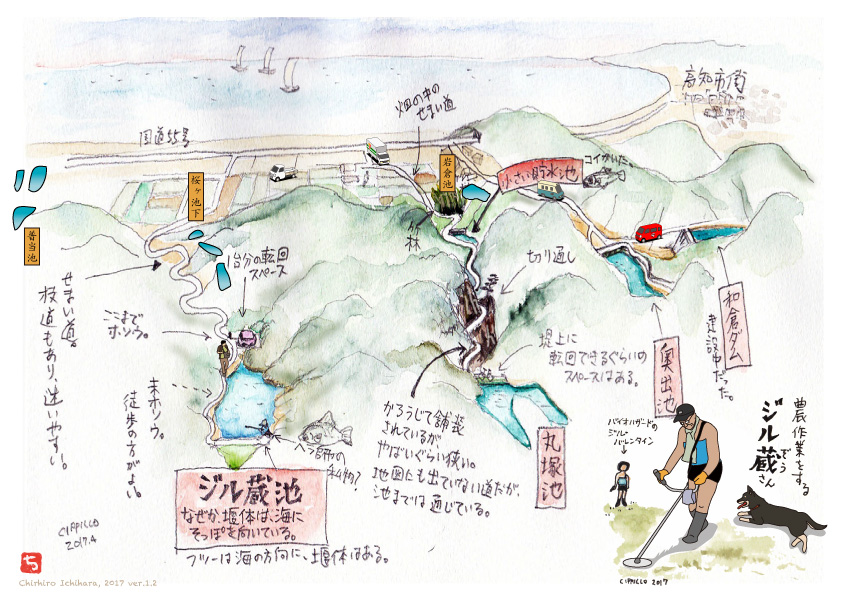 高知市街
畑の中の
せまい道
国道55号
岩倉池
コイがいた。
小さい貯水池
桜ヶ池下
普当池
竹林
1台分の転回
スペース
切り通し
せまい道。
枝道もあり、迷いやすい。
ここまで
ホソウ。
和倉ダム
建設中だった。
堤上に
転回できるぐらいの
スペースはある。
奥出池
未ホソウ。
徒歩の方がよい。
かろうじて舗装
されているが
やばいぐらい狭い。
地図にも出ていない道だが、
池までは通じている。
丸塚池
農作業をする
ジル蔵さん
ぞう
バイオハザードの
ジル・
バレンタイン
ヘラ師の
私物?
ジル蔵池
なぜか、堰体は、海に
そっぽを向いている。
フツーは海の方向に、堰体はある。
CIPPILLO
2017.4
CIPPILLO 2017
ち
Chirhiro Ichihara, 2017 ver.1.2